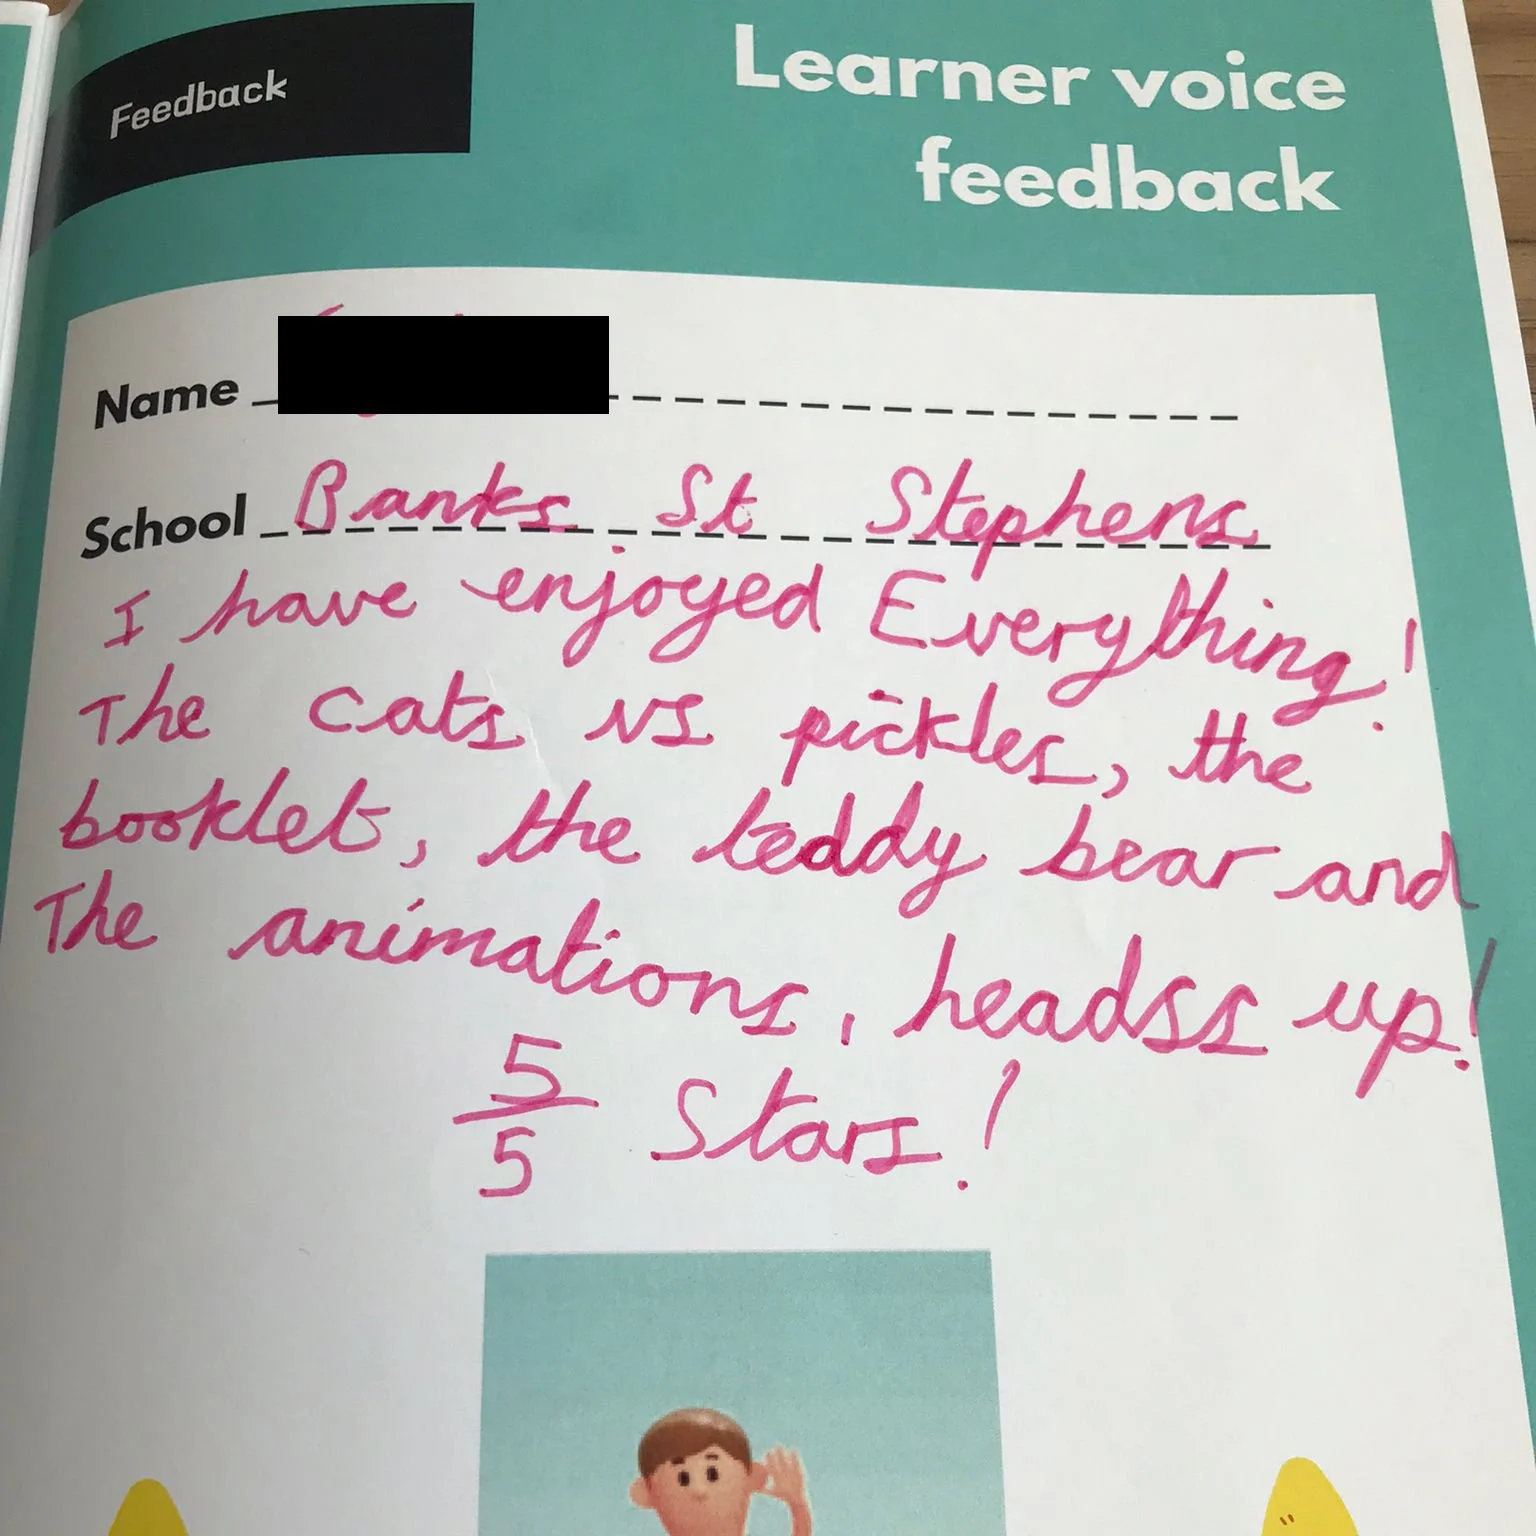 Feedback
Learner voice
feedback
Name
School Banks St Stephens
I have enjoyed Everything!
The cats vs pickles, the
booklet, the teddy bear and
The animations, headss up!
5/5 Stars!